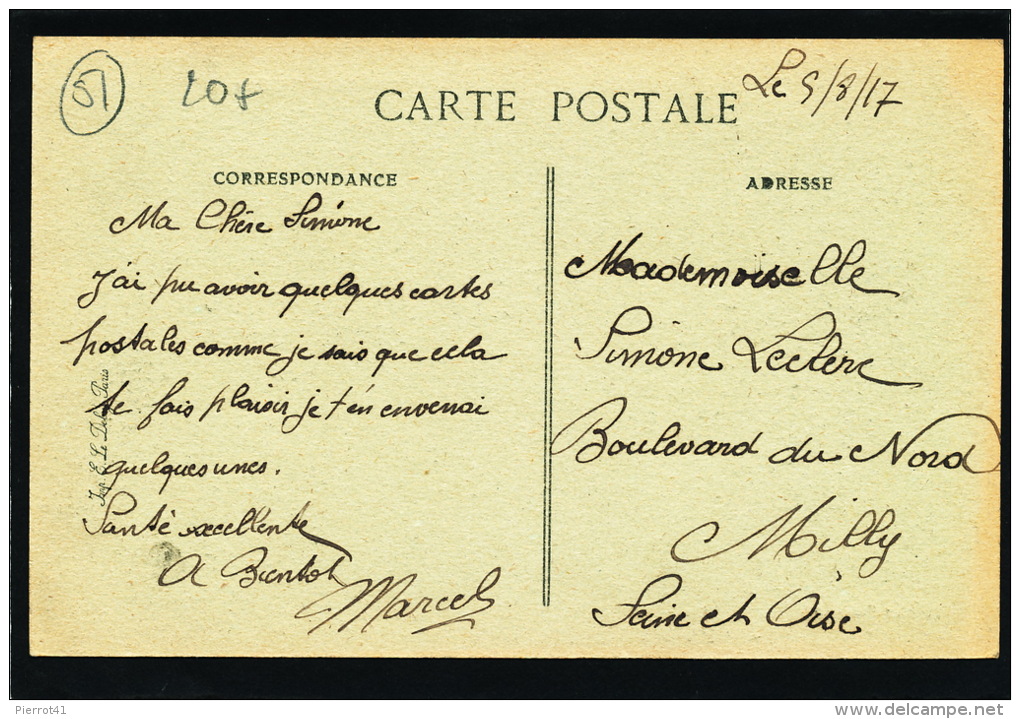 51
20f
Le 5/8/17
CARTE POSTALE
CORRESPONDANCE
Ma Chère Simone
J'ai pu avoir quelques cartes
postales comme je sais que cela
te fais plaisir je t'en envenai
quelques unes.
Santé excellente
A Bientot
Marcel
Imp. E. Le Deley, Paris
ADRESSE
Mademoiselle
Simone Leclerc
Boulevard du Nord
Milly
Seine et Oise
Pierrot41
www.delcampe.net